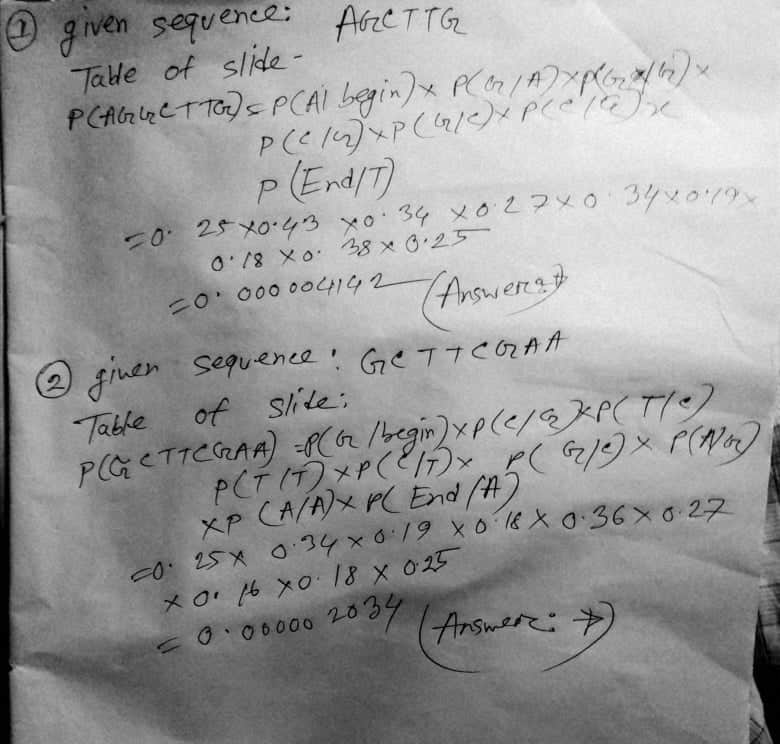 ① given sequence: AGCTTG
Table of slide-
P(AGGCTTG) = P(A| begin) x P(G/A) x P(G/G) x
P(C/G) x P(G/C) x P(C/G) x
P(End/T)
= 0. 25 x 0.43 x 0.34 x 0.27 x 0.34 x 0.19 x
0.18 x 0.38 x 0.25
= 0. 000004142 (Answer:→
② given sequence: GCTTCGAA
Table of slide:
P(GCTTCGAA) = P(G/begin) x P(C/G) x P(T/C)
P(T/T) x P(C/T) x P(G/C) x P(A/G)
x P(A/A) x P(End/A)
= 0. 25 x 0.34 x 0.19 x 0.18 x 0.36 x 0.27
x 0.16 x 0.18 x 0.25
= 0.00000 2034 (Answer: →)